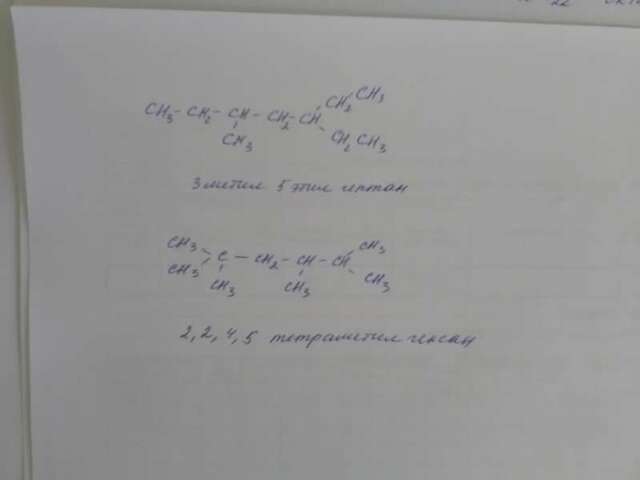 CH₃ - CH₂ - CH - CH₂ - CH CH₂ CH₃
CH₃ CH₂ CH₃
3 метил 5 этил гептан
CH₃ C - CH₂ - CH - CH CH₃
CH₃ CH₃ CH₃ CH₃
2, 2, 4, 5 тетраметил гексан